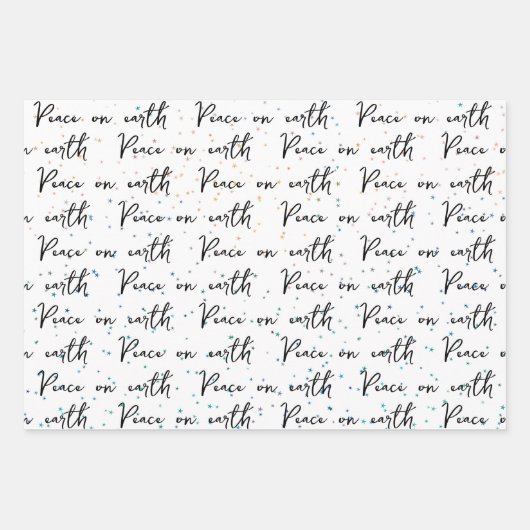 Peace on earth Peace on earth Peace on earth
n earth Peace on earth Peace on earth Peace o
Peace on earth Peace on earth Peace on earth
n earth Peace on earth Peace on earth Peace o
Peace on earth Peace on earth Peace on earth
n earth Peace on earth Peace on earth Peace o
Peace on earth Peace on earth Peace on earth
n earth Peace on earth Peace on earth Peace o
Peace on earth Peace on earth Peace on earth
n earth Peace on earth Peace on earth Peace o